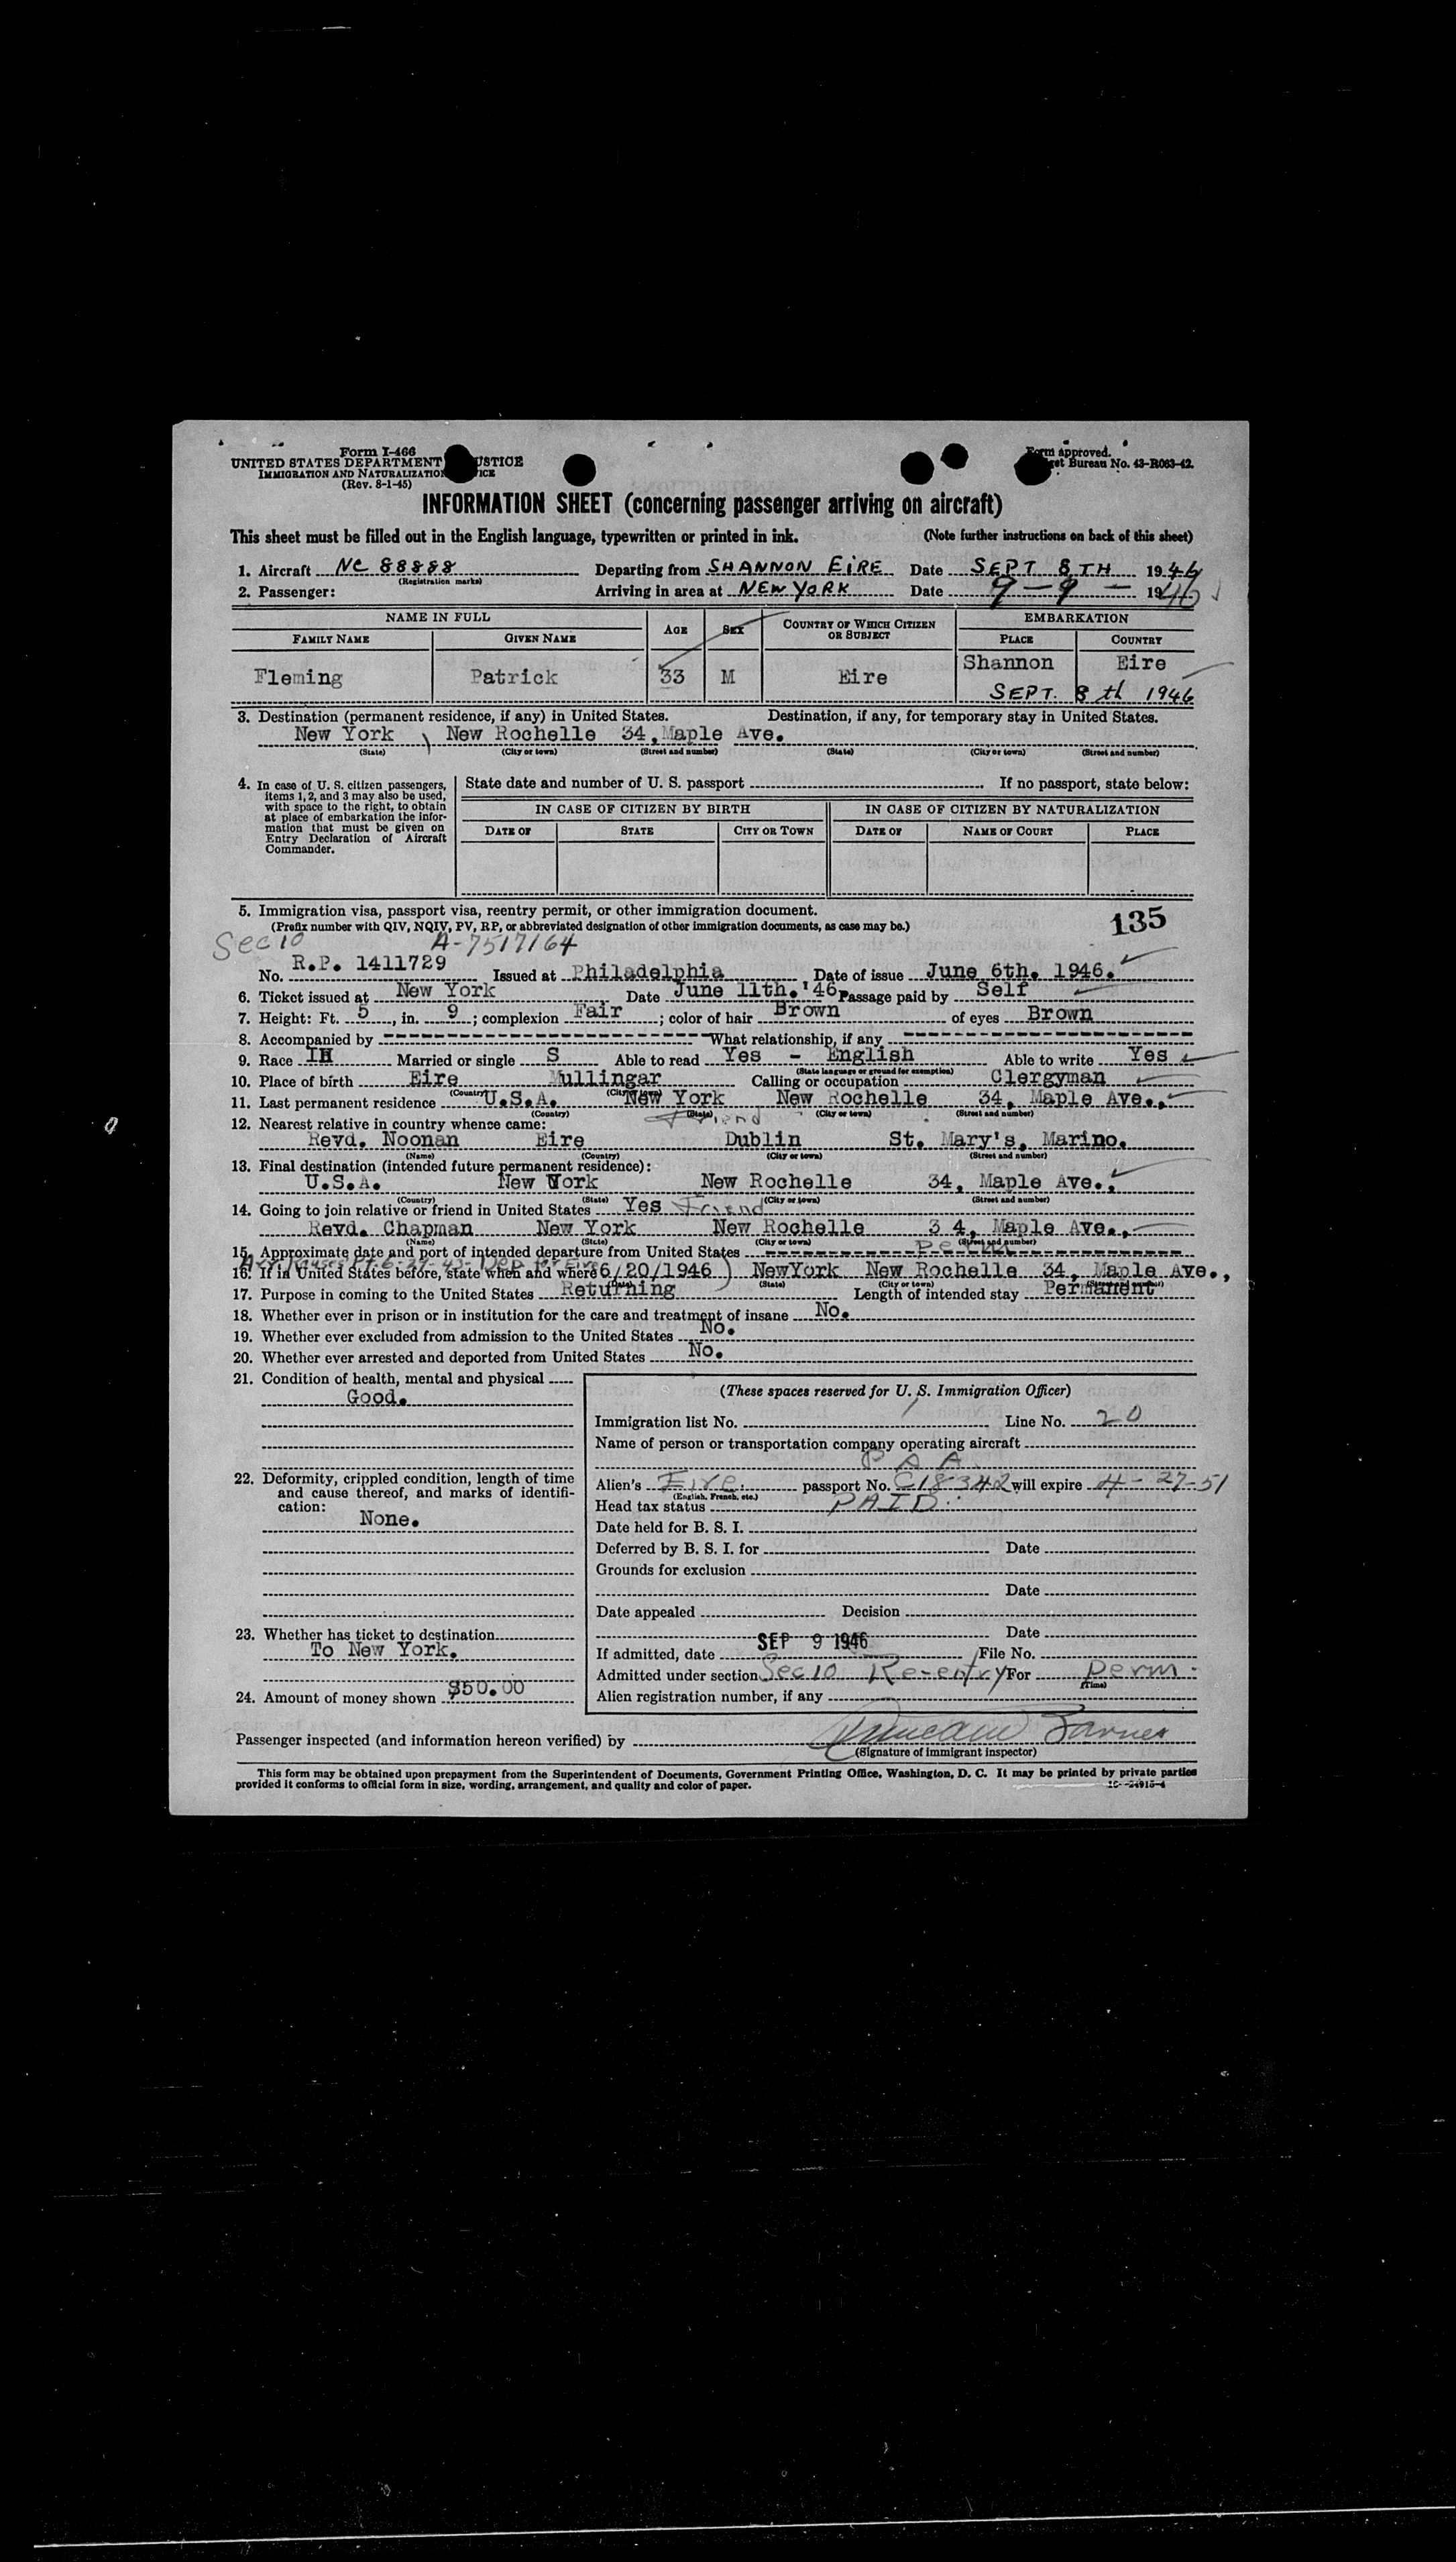 Form I-466
UNITED STATES DEPARTMENT JUSTICE
IMMIGRATION AND NATURALIZATION
(Rev. 8-1-45)
Form approved.
Bureau No. 43-R063-42.
INFORMATION SHEET (concerning passenger arriving on aircraft)
This sheet must be filled out in the English language, typewritten or printed in ink. (Note further instructions on back of this sheet)
1. Aircraft NC 88888 Departing from SHANNON EIRE Date SEPT 8TH 1946
(Registration marks)
2. Passenger: Arriving in area at NEW YORK Date 9-9- 1946
NAME IN FULL AGE SEX COUNTRY OF WHICH CITIZEN OR SUBJECT EMBARKATION
FAMILY NAME GIVEN NAME PLACE COUNTRY
Fleming Patrick 33 M Eire Shannon Eire
SEPT. 8th 1946
3. Destination (permanent residence, if any) in United States. Destination, if any, for temporary stay in United States.
New York New Rochelle 34, Maple Ave.
(State) (City or town) (Street and number) (State) (City or town) (Street and number)
4. In case of U. S. citizen passengers, items 1, 2, and 3 may also be used, with space to the right, to obtain at place of embarkation the information that must be given on Entry Declaration of Aircraft Commander.
State date and number of U. S. passport If no passport, state below:
IN CASE OF CITIZEN BY BIRTH IN CASE OF CITIZEN BY NATURALIZATION
DATE OF STATE CITY OR TOWN DATE OF NAME OF COURT PLACE
5. Immigration visa, passport visa, reentry permit, or other immigration document.
(Prefix number with QIV, NQIV, PV, RP, or abbreviated designation of other immigration documents, as case may be.) 135
Sec 10 A-7517164
No. R.P. 1411729 Issued at Philadelphia Date of issue June 6th. 1946.
6. Ticket issued at New York Date June 11th.'46 Passage paid by Self
7. Height: Ft. 5, in. 9; complexion Fair; color of hair Brown of eyes Brown
8. Accompanied by What relationship, if any
9. Race IH Married or single S Able to read Yes - English Able to write Yes
(State language or ground for exemption)
10. Place of birth Eire Mullingar Calling or occupation Clergyman
(Country) (City or town)
11. Last permanent residence U.S.A. New York New Rochelle 34, Maple Ave.,
(Country) (State) (City or town) (Street and number)
12. Nearest relative in country whence came: Friend
Revd. Noonan Eire Dublin St. Mary's, Marino.
(Name) (Country) (City or town) (Street and number)
13. Final destination (intended future permanent residence):
U.S.A. New York New Rochelle 34, Maple Ave.,
(Country) (State) (City or town) (Street and number)
14. Going to join relative or friend in United States Yes Friend
Revd. Chapman New York New Rochelle 3 4, Maple Ave.,
(Name) (State) (City or town) (Street and number)
15. Approximate date and port of intended departure from United States Perm
16. If in United States before, state when and where 6/20/1946 NewYork New Rochelle 34, Maple Ave.,
(State) (City or town) (Street and number)
17. Purpose in coming to the United States Returning Length of intended stay Permanent
18. Whether ever in prison or in institution for the care and treatment of insane No.
19. Whether ever excluded from admission to the United States No.
20. Whether ever arrested and deported from United States No.
21. Condition of health, mental and physical
Good.
22. Deformity, crippled condition, length of time and cause thereof, and marks of identification:
None.
23. Whether has ticket to destination
To New York.
24. Amount of money shown $50.00
(These spaces reserved for U. S. Immigration Officer)
Immigration list No. 1 Line No. 20
Name of person or transportation company operating aircraft
P A A
Alien's Eire passport No. C18342 will expire 4-27-51
(English, French, etc.)
Head tax status PAID
Date held for B. S. I.
Deferred by B. S. I. for Date
Grounds for exclusion
Date
Date appealed Decision
Date
If admitted, date SEP 9 1946 File No.
Admitted under section Sec 10 Re-entry For Perm
(Time)
Alien registration number, if any
Passenger inspected (and information hereon verified) by
(Signature of immigrant inspector)
This form may be obtained upon prepayment from the Superintendent of Documents, Government Printing Office, Washington, D. C. It may be printed by private parties
provided it conforms to official form in size, wording, arrangement, and quality and color of paper. 16-24915-4